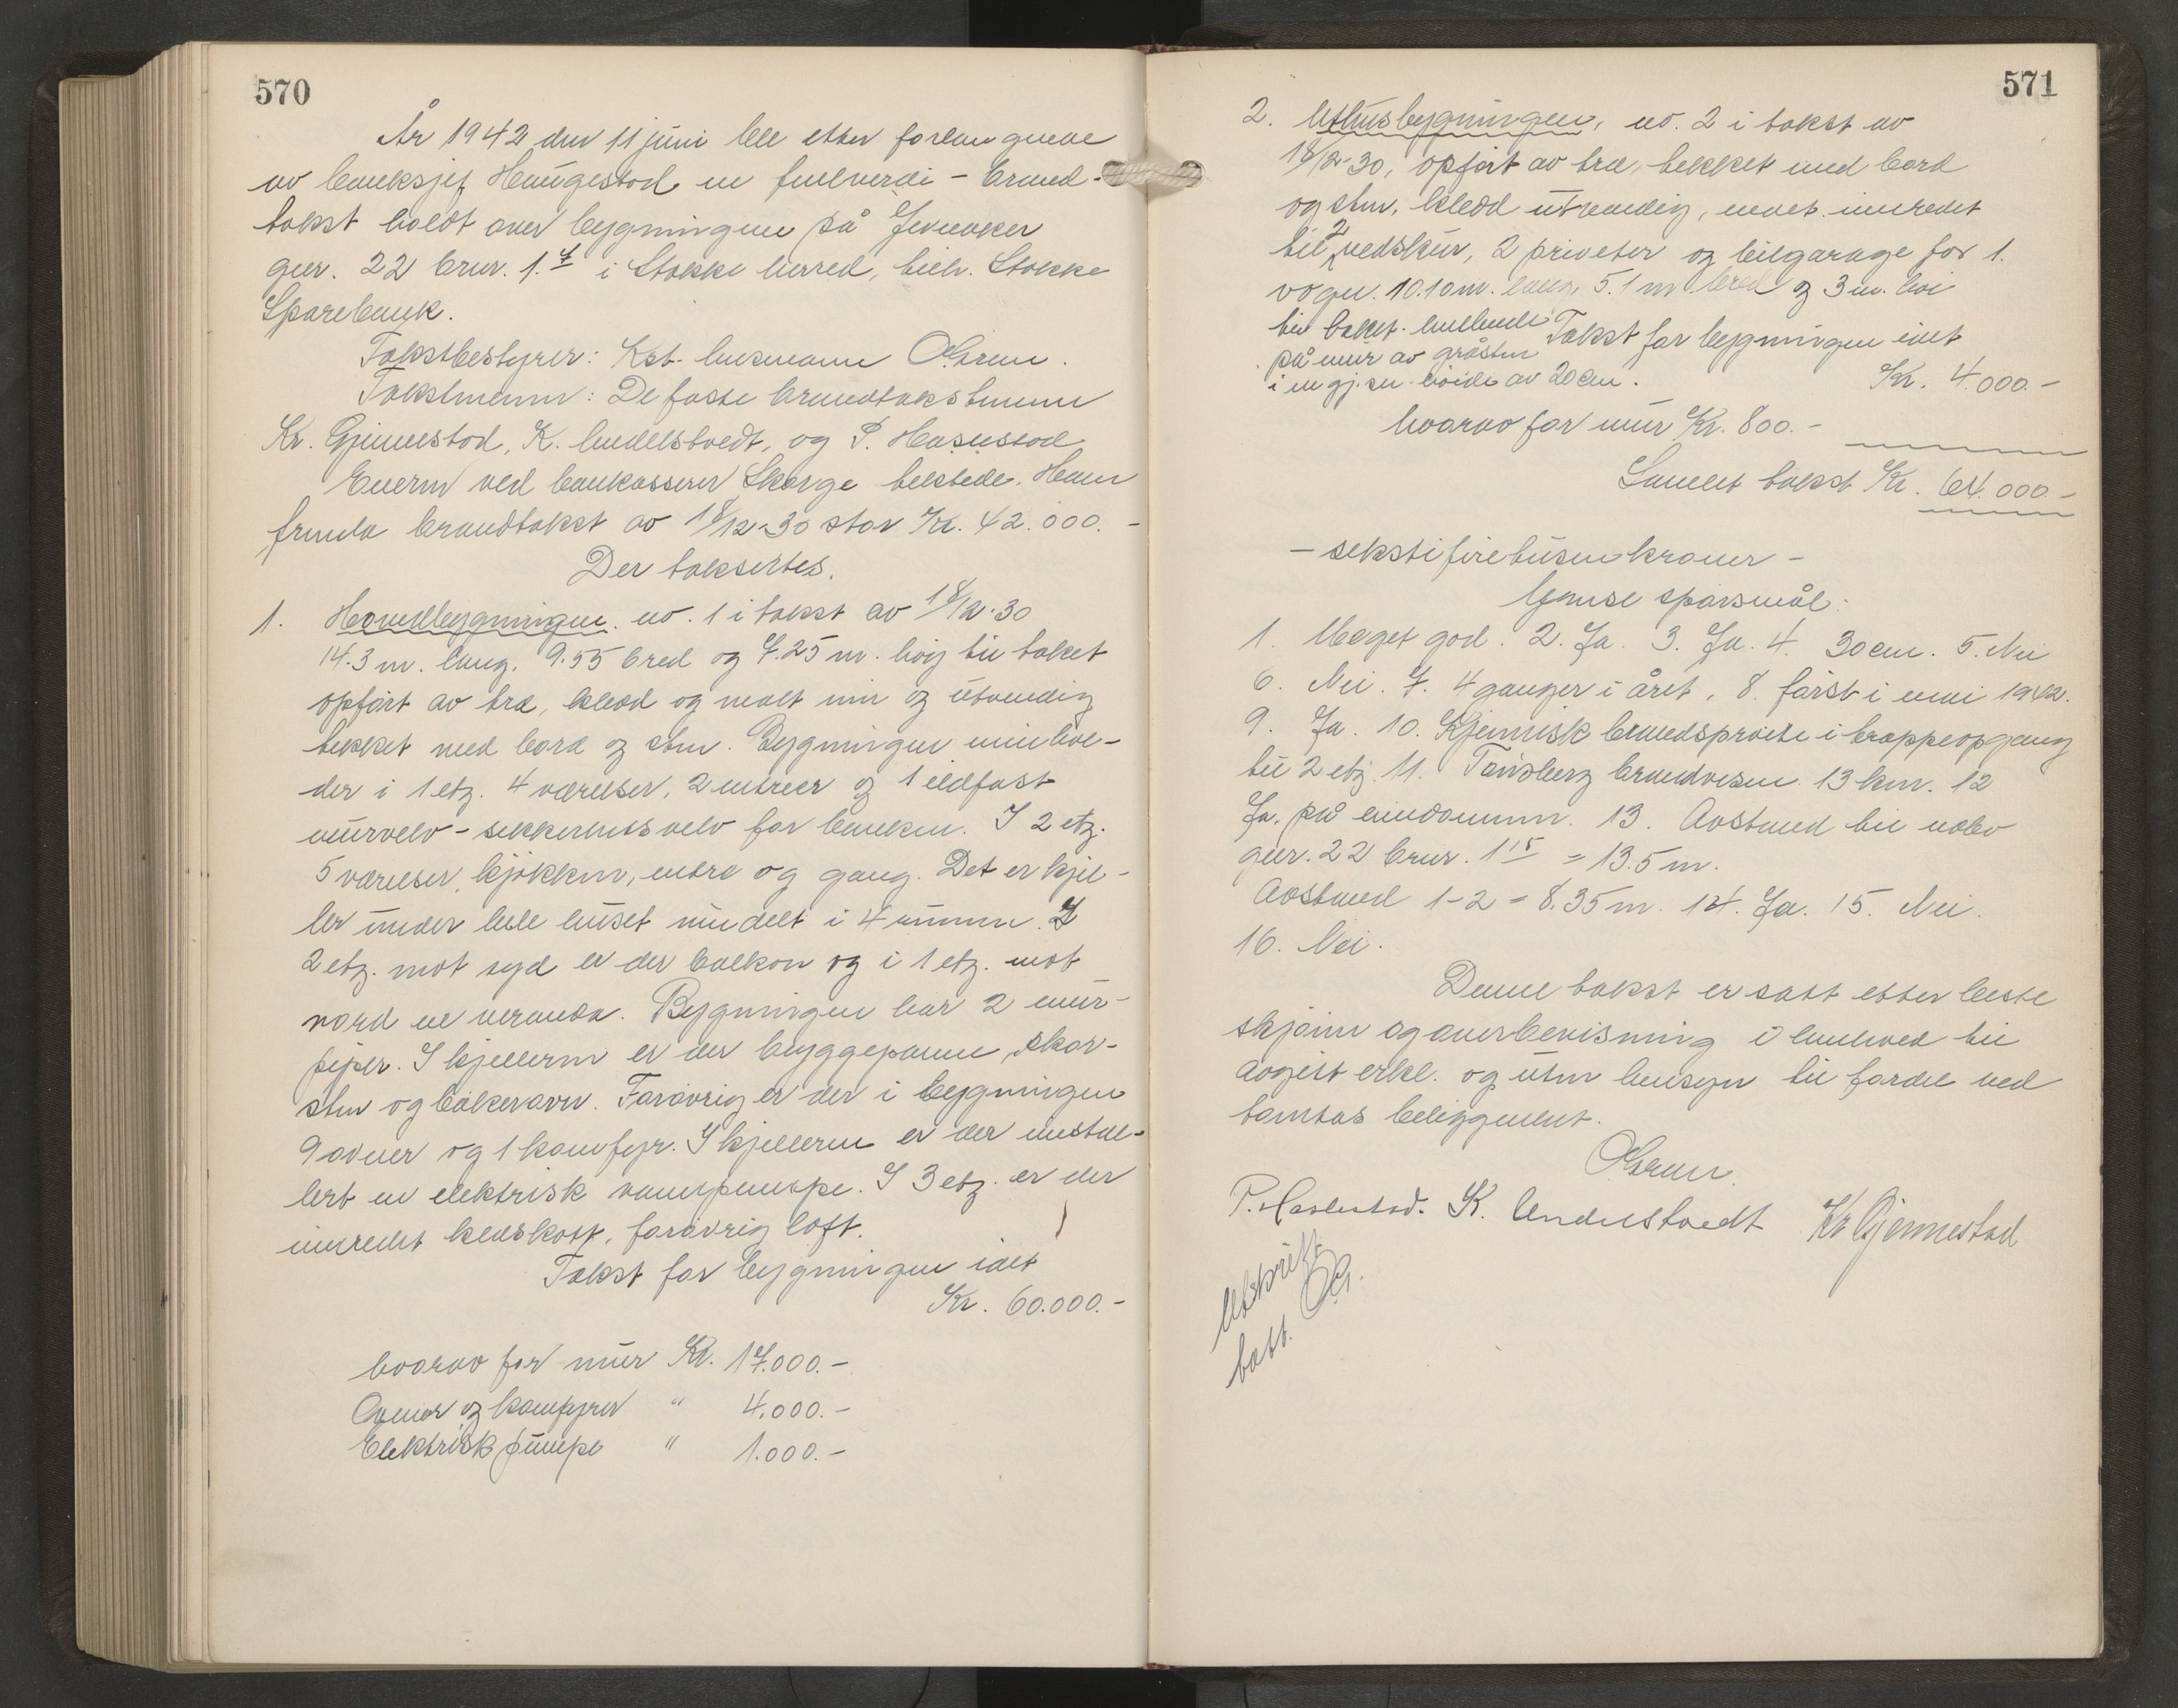 570
År 1942 den 11 juni ble etter forlangende
av banksjef Haugestad en fullverdi - brand-
takst holdt over bygningene på Jernaker
gnr. 22 bnr. 1.7 i Stokke herred, tilh. Stokke
Sparebank.
Takstbestyrer: Kst. lensmann OBrenn.
Takstmenn: De faste brandtakstmenn
Kr. Gjennestad, K. Undelstvedt, og P. Hasnestad
Eieren ved bankkasserer Skorge tilstede. Hann
fremla brandtakst av 18/12-30 stor Kr. 42.000.-
Der taksertes.
1. Hovedbygningen. no. 1 i takst av 18/12-30
14.3 m. lang, 9.55 bred og 7.25 m. høy til taket
opført av tre, kledd og malt inn og utvendig
tekket med bord og sten. Bygningen innehol-
der i 1 etg. 4 værelser, 2 entreer og 1 ildfast
murvelv - sikkerhetsvelv for banken. I 2 etg.
5 værelser, kjøkken, entre og gang. Det er kjel-
ler under hele huset inndelt i 4 rumm. I
2 etg. mot syd er der balkon og i 1 etg. mot
nord en veranda. Bygningen har 2 mur-
piper. I kjelleren er der bryggepanne, skor-
sten og bakerovn. Forøvrig er der i bygningen
9 ovner og 1 komfyr. I kjelleren er der instal-
lert en elektrisk vannpumpe. I 3 etg. er der
innredet kledskott, forøvrig loft.
Takst for bygningen ialt
Kr. 60.000.-
hvorav for mur Kr. 17.000.-
Ovner og komfyrer " 4.000.-
Elektrisk pumpe " 1.000.-
571
2. Uthusbygningen, no. 2 i takst av
18/12-30, opført av tre, tekket med bord
og sten, kledd utvendig, innredet
til 2 vedskur, 2 priveter og bilgarage for 1.
vogn. 10.10 m. lang, 5.1 m bred og 3 m. høi
til taket. hvilende Takst for bygningen ialt
på mur av gråsten
i en gj.sn. høide av 20 cm. Kr. 4.000.-
hvorav for mur Kr. 800.-
Samlet takst Kr. 64.000.-
- sekstifiretusen kroner -
Garse spørsmål:
1. Meget god. 2. Ja. 3. Ja. 4. 30 cm. 5. Nei
6. Nei. 7. 4 ganger i året, 8. først i mai 1942.
9. Ja. 10. Kjemisk brandsprøite i trappeopgang
til 2 etg. 11. Tønsberg brandvesen 13 km. 12
Ja. på eiendommen. 13. Avstand til nabo
gnr. 22 bnr. 1 15 = 13.5 m.
Avstand 1-2 = 8.35 m. 14. Ja. 15. Nei.
16. Nei.
Denne takst er satt etter beste
skjønn og overbevisning i henhold til
avgitt erkl. og uten hensyn til fordel ved
tomtas beliggenhet.
OBrenn.
P. Haslestad. K. Undelstvedt Kr Gjennestad
Utskrift
tatt. OB.